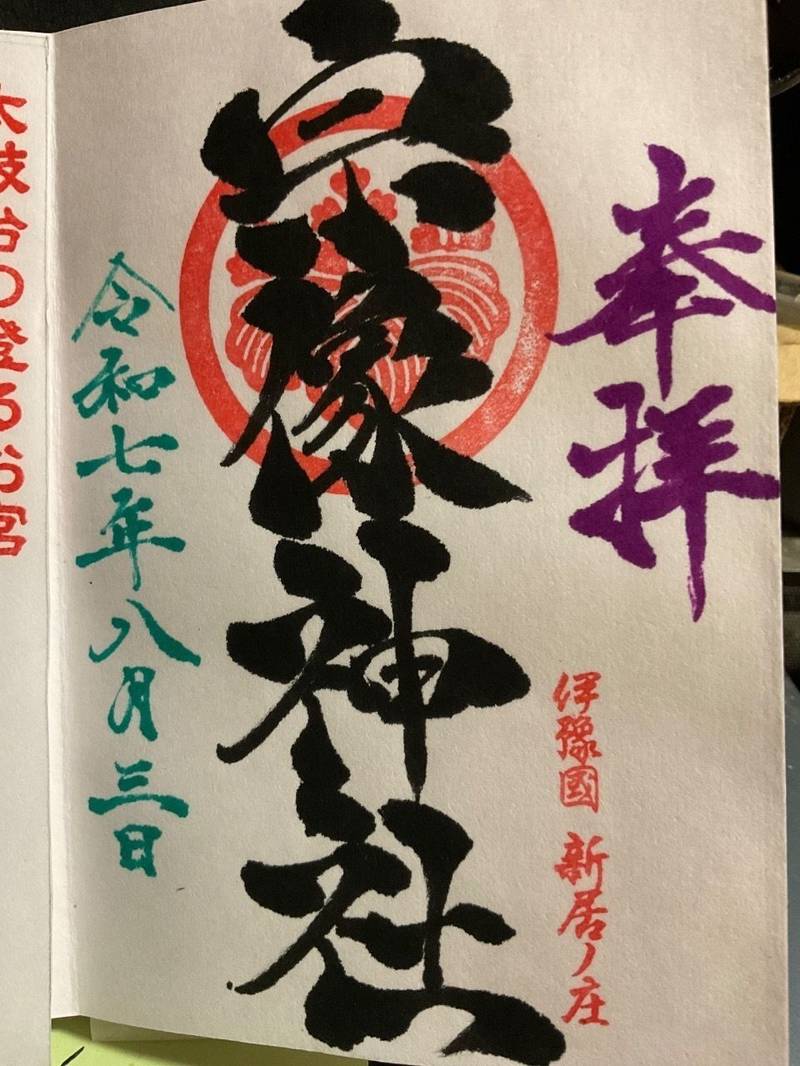 奉拝
伊豫國 新居ノ庄
宗像神社
令和七年八月三日
太鼓台の登るお宮